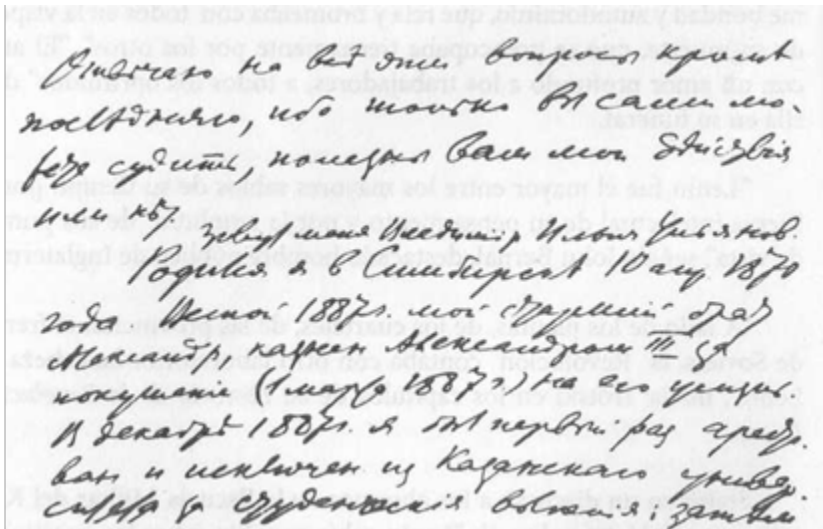 на всѣ вопросы кромѣ
послѣдняго, ибо только вы сами мо-
жете судить, полезны вам мои
или нѣт.
Зовут меня Владимир Ильич Ульянов.
Родился я в Симбирскѣ 10 апр. 1870
года. Весной 1887 г. мой старший брат
Александр казнен Александром III за
покушение (1 марта 1887 г.) на его жизнь.
В декабрѣ 1887 г. я был первый раз аресто-
ван и исключен из Казанскаго универ-
ситета за студенческия волнения; затем